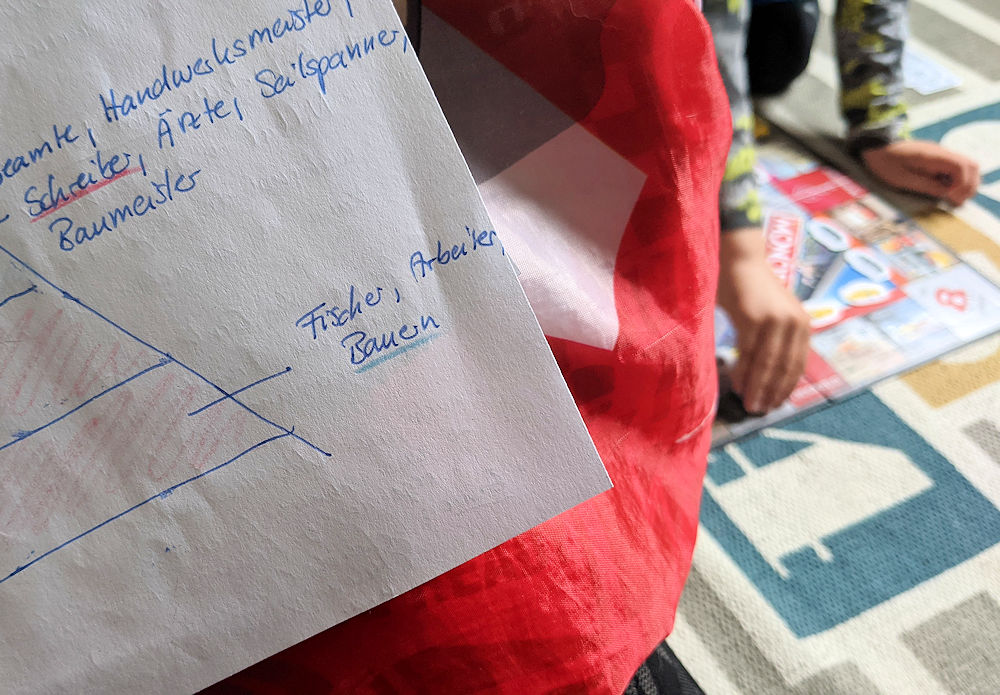 Beamte, Handwerksmeister,
Schreiber, Ärzte, Seilspanner,
Baumeister
Fischer, Arbeiter,
Bauern